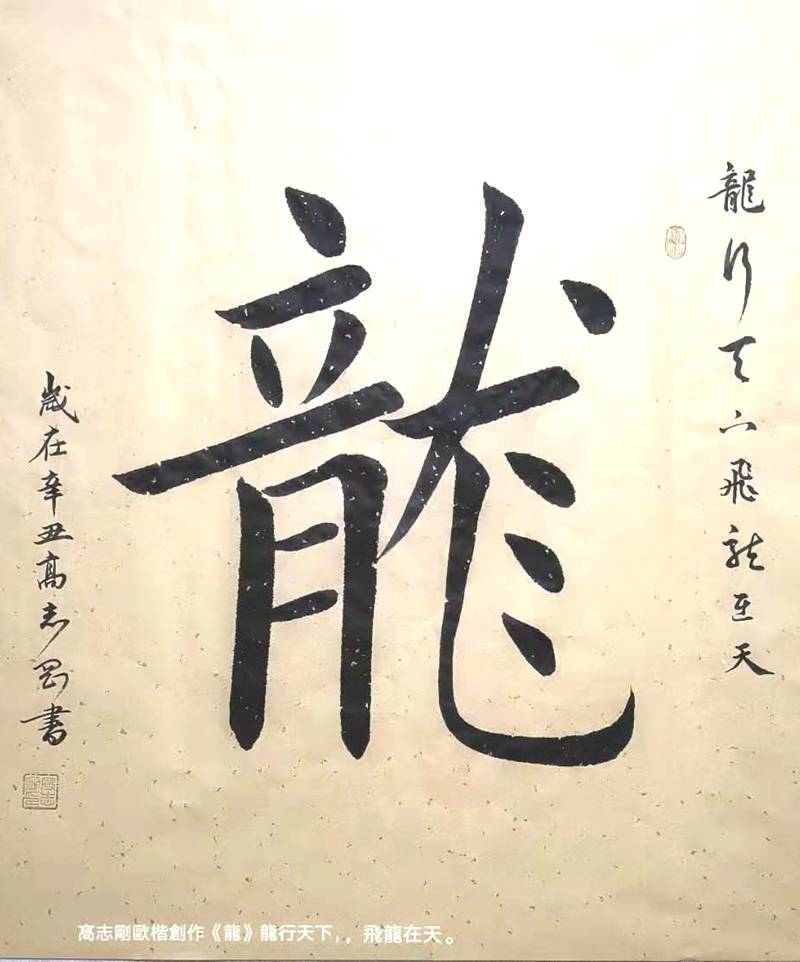 龍行天下飛龍在天
龍
歲在辛丑高志剛書
高志剛歐楷創作《龍》龍行天下,，飛龍在天。